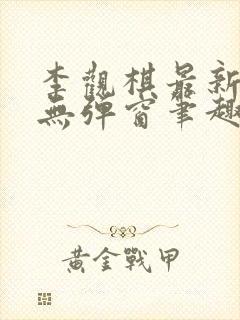 李觀棋最新
無彈窗筆趣
黃金戰甲